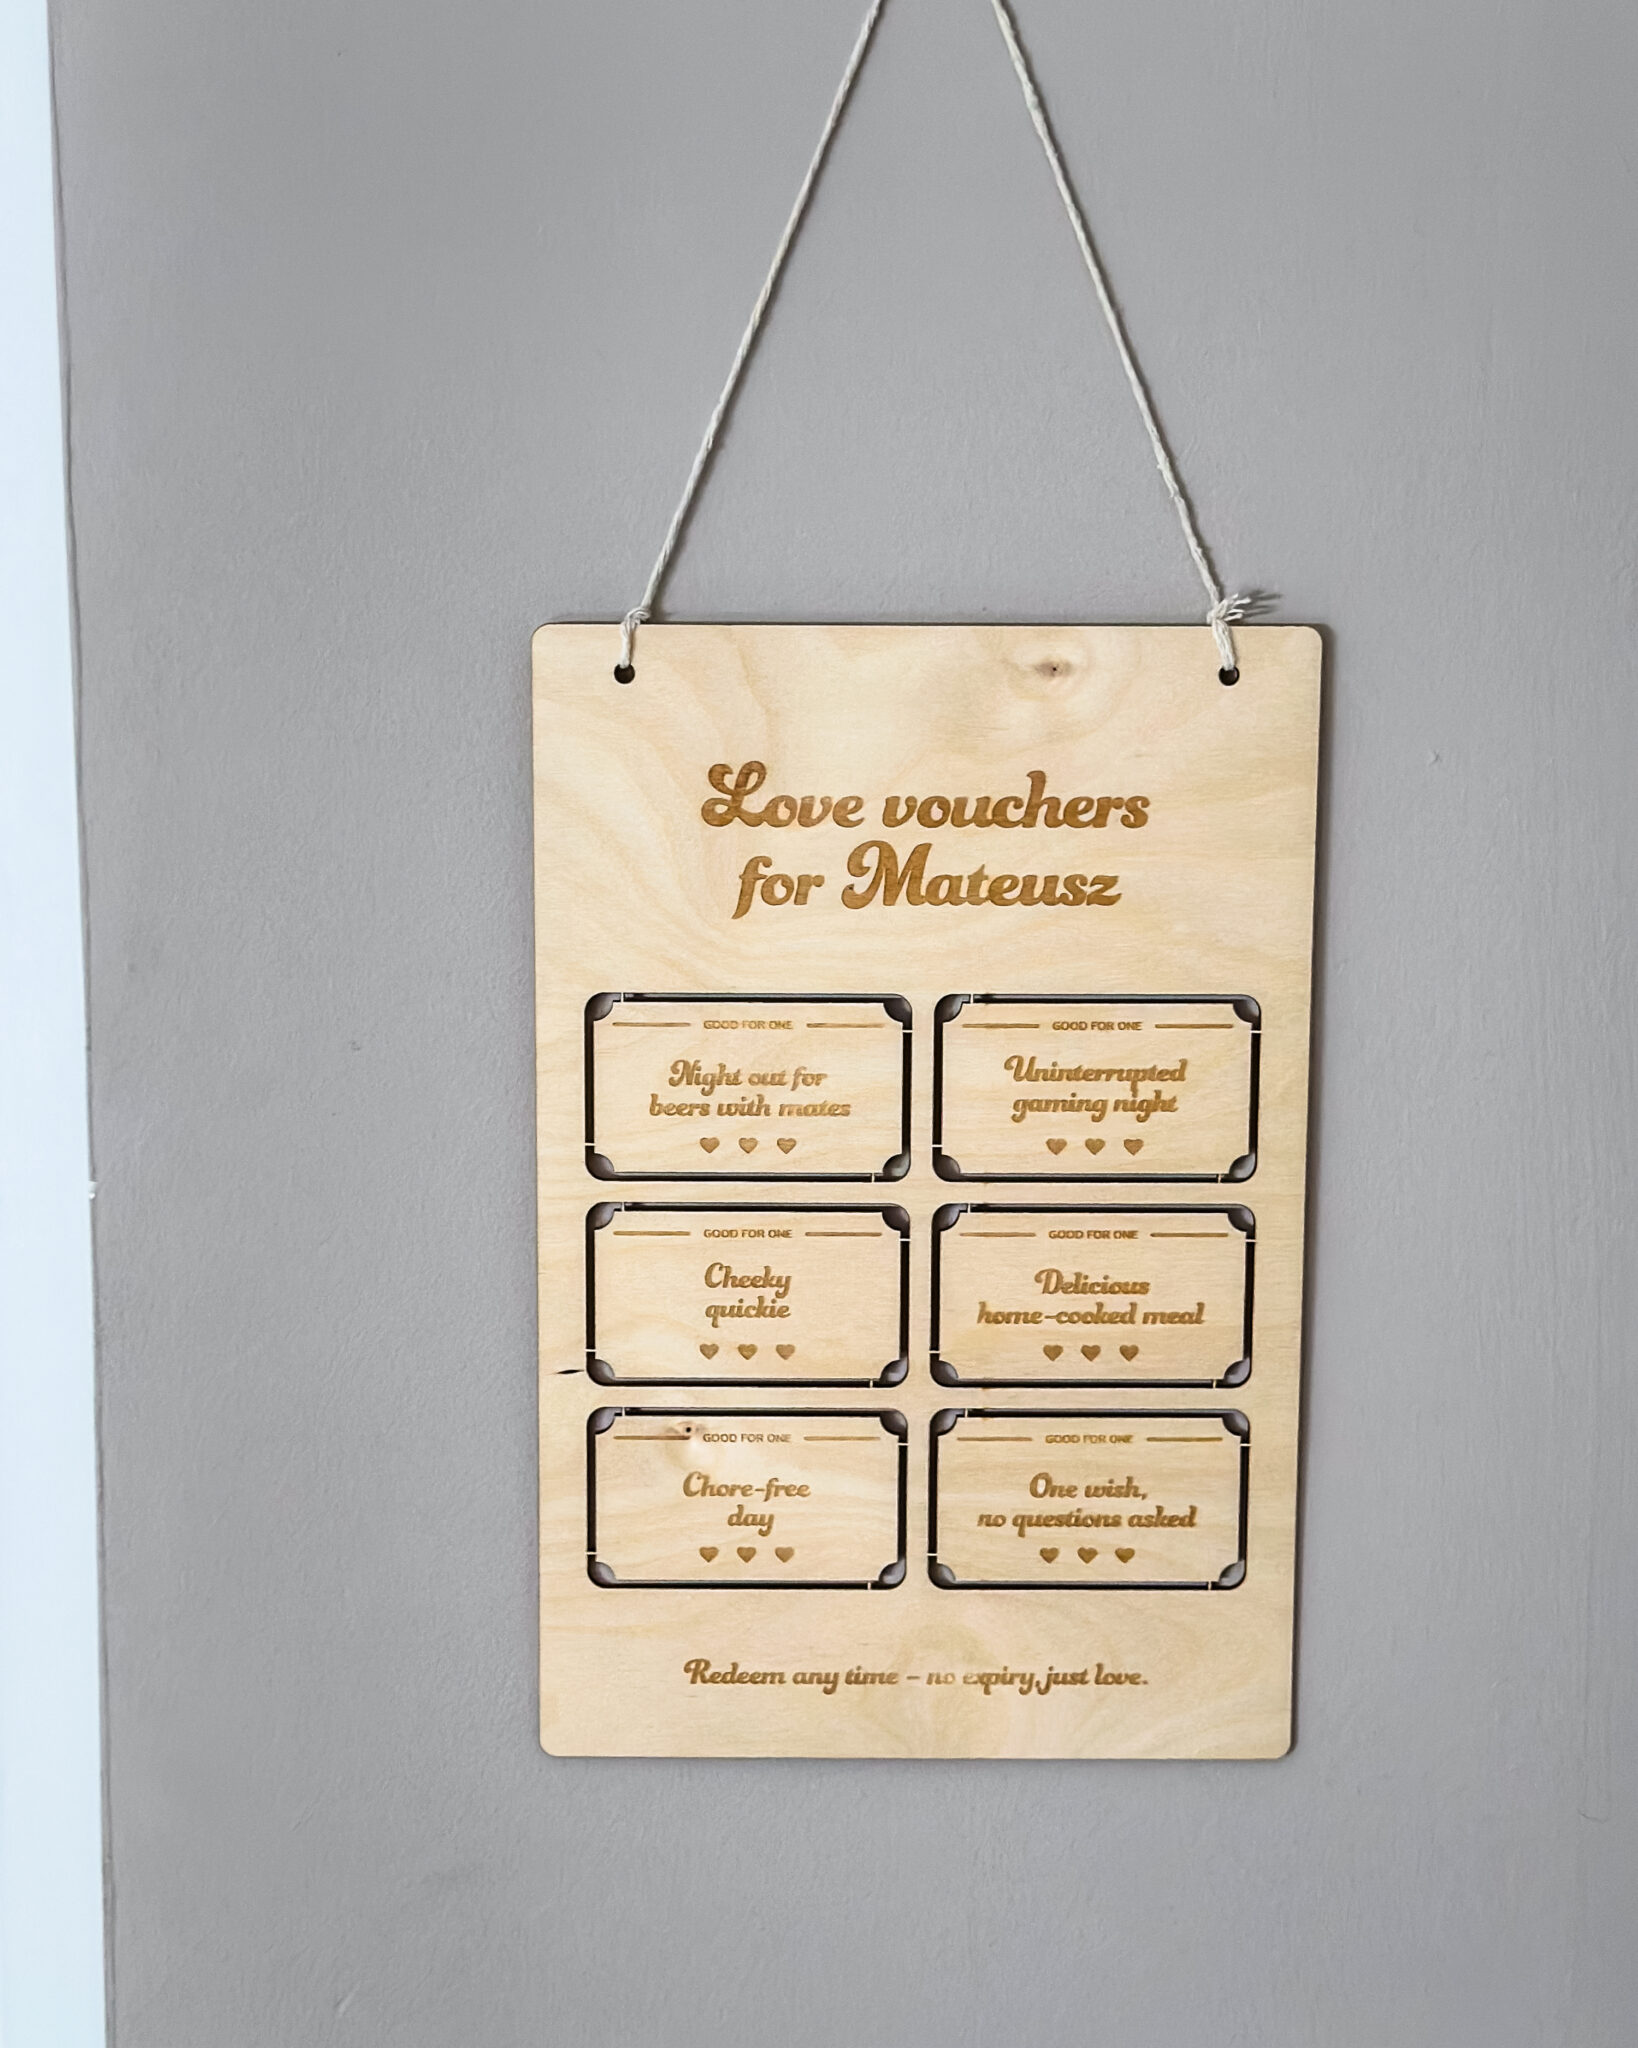 Love vouchers
for Mateusz
GOOD FOR ONE
Night out for
beers with mates
GOOD FOR ONE
Uninterrupted
gaming night
GOOD FOR ONE
Cheeky
quickie
GOOD FOR ONE
Delicious
home-cooked meal
GOOD FOR ONE
Chore-free
day
GOOD FOR ONE
One wish,
no questions asked
Redeem any time – no expiry, just love.